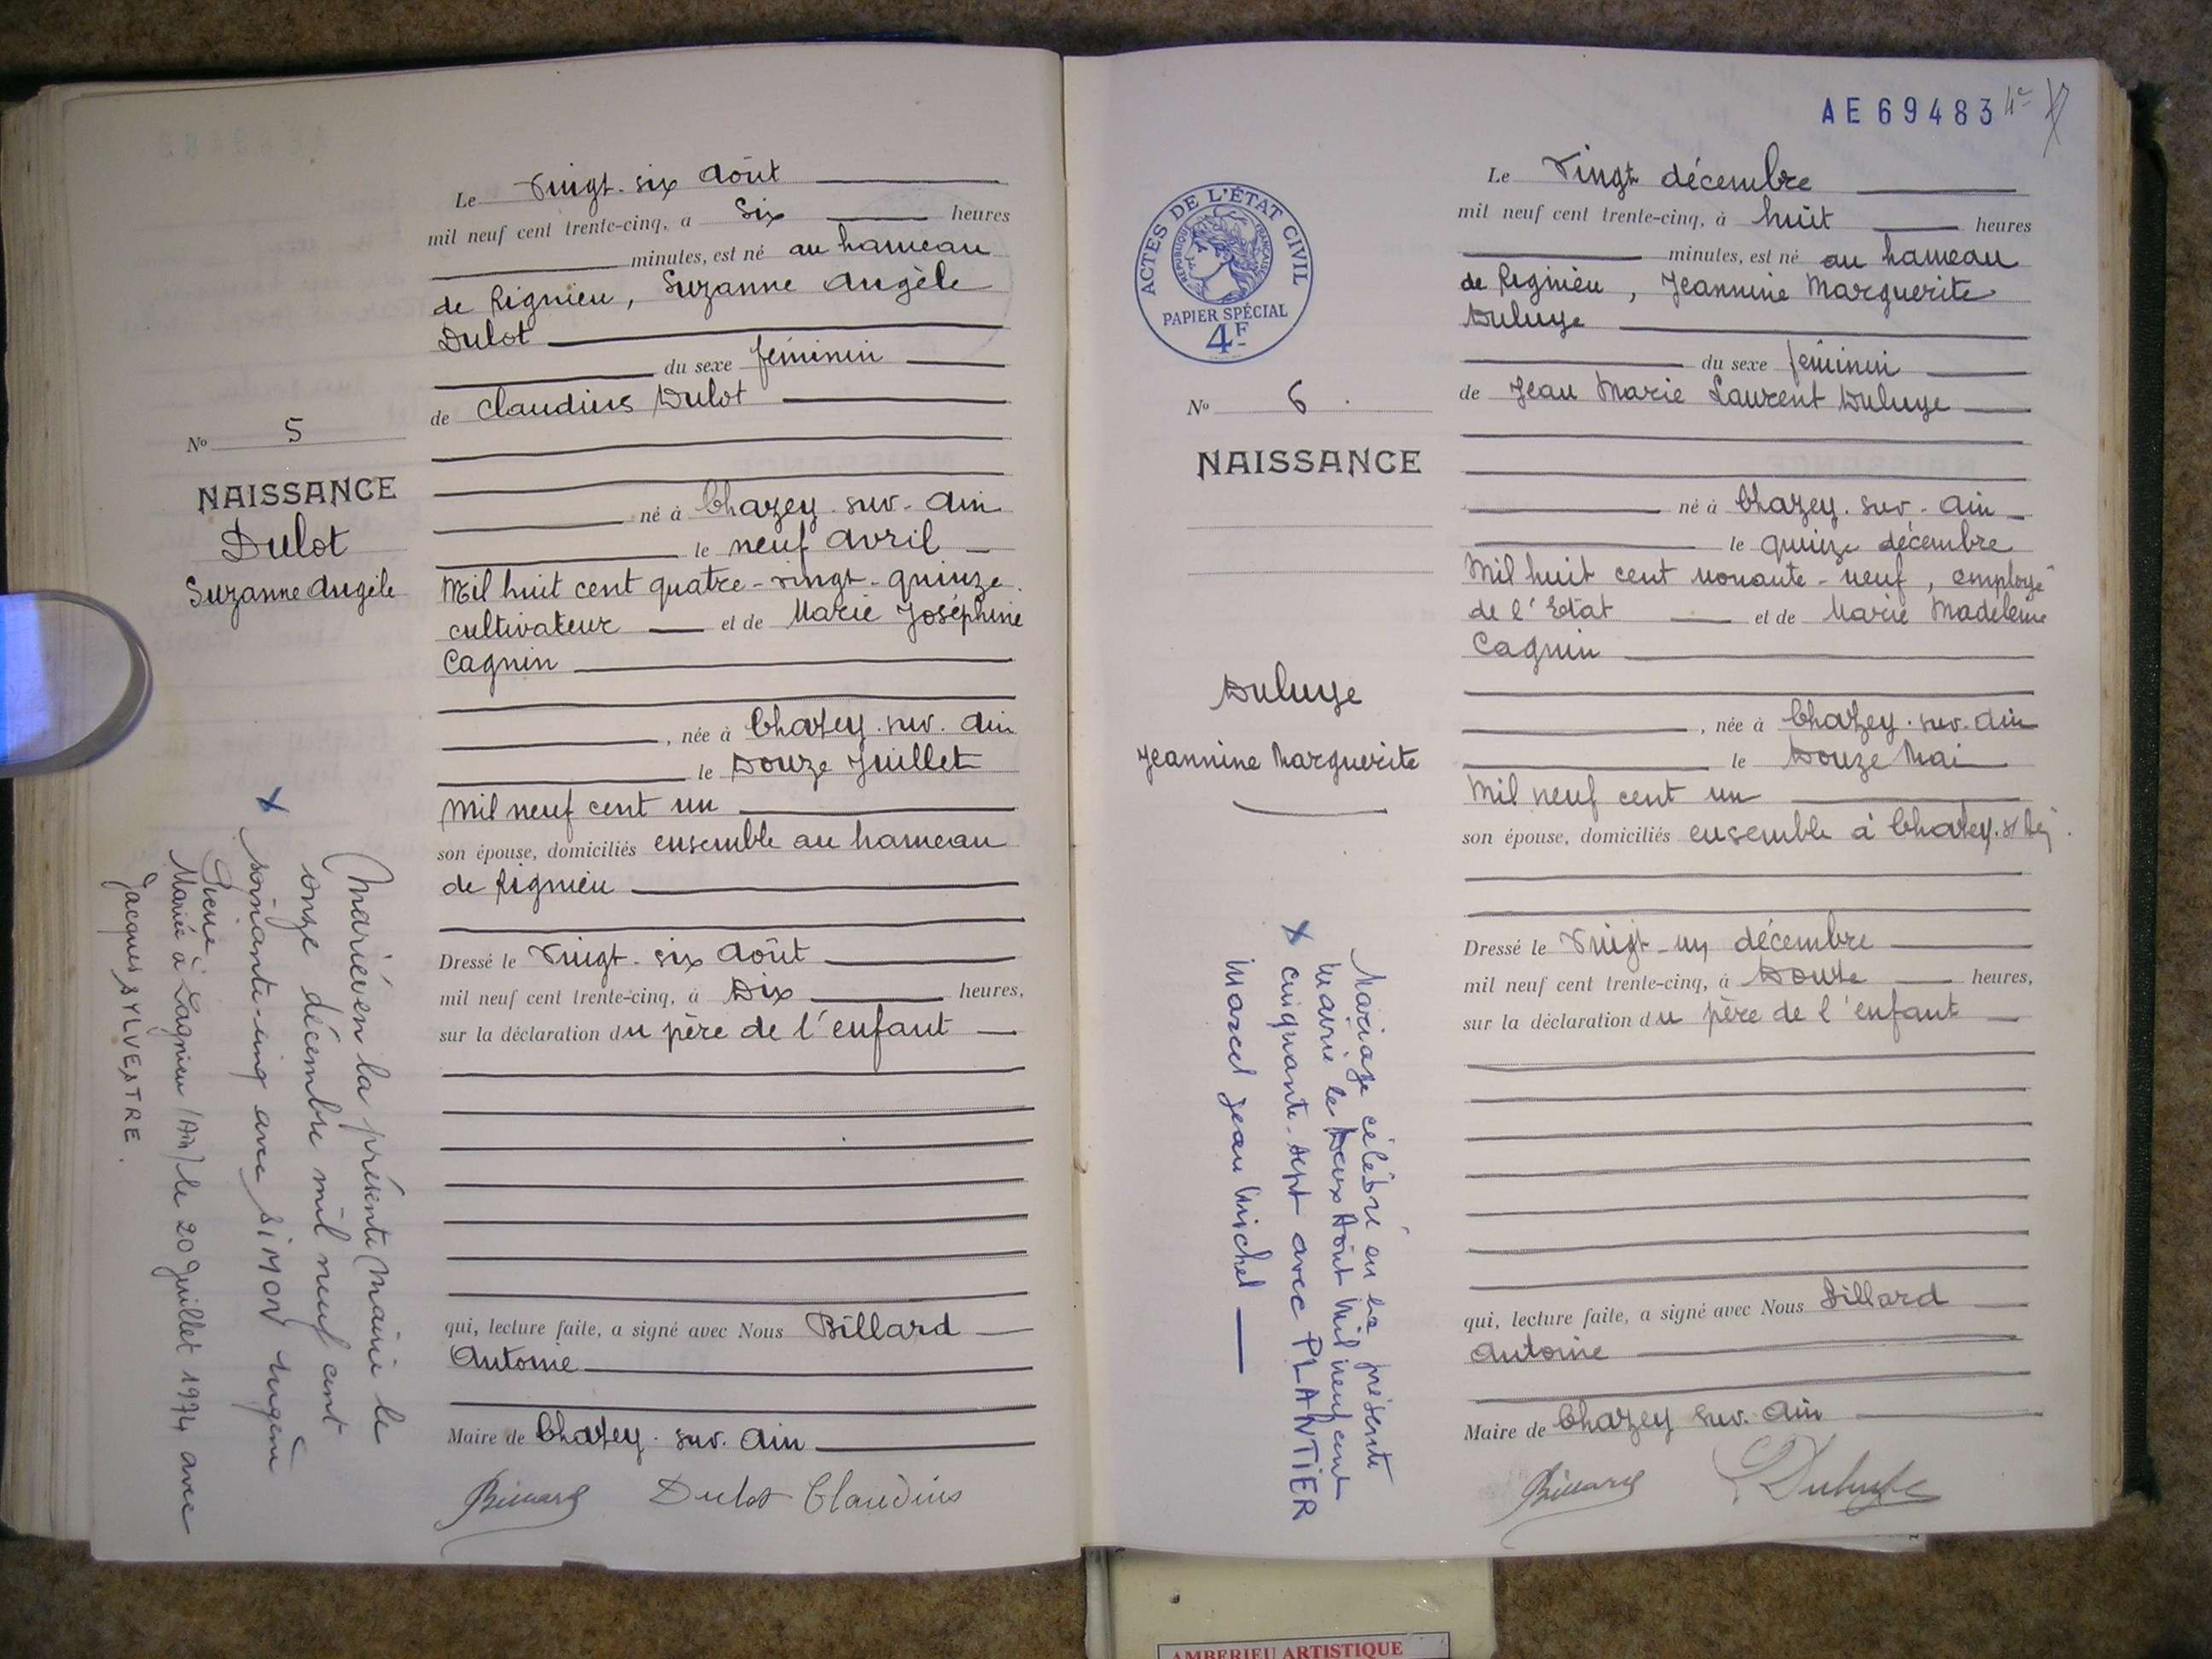 Le Vingt-six Août
mil neuf cent trente-cinq, à Six heures
minutes, est né au hameau
de Rignieu, Suzanne Angèle
Dulot
du sexe féminin
de Claudius Dulot
né à Chazey-sur-Ain
le neuf Avril
Mil huit cent quatre-vingt-quinze
cultivateur et de Marie Joséphine
Cagnin
, née à Chazey-sur-Ain
le Douze Juillet
Mil neuf cent un
son épouse, domiciliés ensemble au hameau
de Rignieu
Dressé le Vingt-six Août
mil neuf cent trente-cinq, à Dix heures,
sur la déclaration du père de l'enfant
qui, lecture faite, a signé avec Nous Billard
Antoine
Maire de Chazey-sur-Ain
Billard Dulot Claudius
No 5
NAISSANCE
Dulot
Suzanne Angèle
Mariée en la présente Mairie le
onze décembre mil neuf cent
soixante-cinq avec SIMON Eugène
Mariée à Lagnieu (Ain) le 20 Juillet 1974 avec
Jacques SYLVESTRE.
AE 69483
ACTES DE L'ÉTAT CIVIL
RÉPUBLIQUE FRANÇAISE
PAPIER SPÉCIAL
4F
No 6
NAISSANCE
Duluye
Jeannine Marguerite
Mariage célébré en la présente
Mairie le Deux Août Mil neuf cent
X cinquante-sept avec PLANTIER
Marcel Jean Michel
Le Vingt décembre
mil neuf cent trente-cinq, à huit heures
minutes, est né au hameau
de Rignieu, Jeannine Marguerite
Duluye
du sexe féminin
de Jean Marie Laurent Duluye
né à Chazey-sur-Ain
le quinze décembre
Mil huit cent nonante-neuf, employé
de l'Etat et de Marie Madeleine
Cagnin
, née à Chazey-sur-Ain
le Douze Mai
Mil neuf cent un
son épouse, domiciliés ensemble à Chazey
Dressé le Vingt-un décembre
mil neuf cent trente-cinq, à Douze heures,
sur la déclaration du père de l'enfant
qui, lecture faite, a signé avec Nous Billard
Antoine
Maire de Chazey sur-Ain
Billard Duluye
AMBERIEU ARTISTIQUE